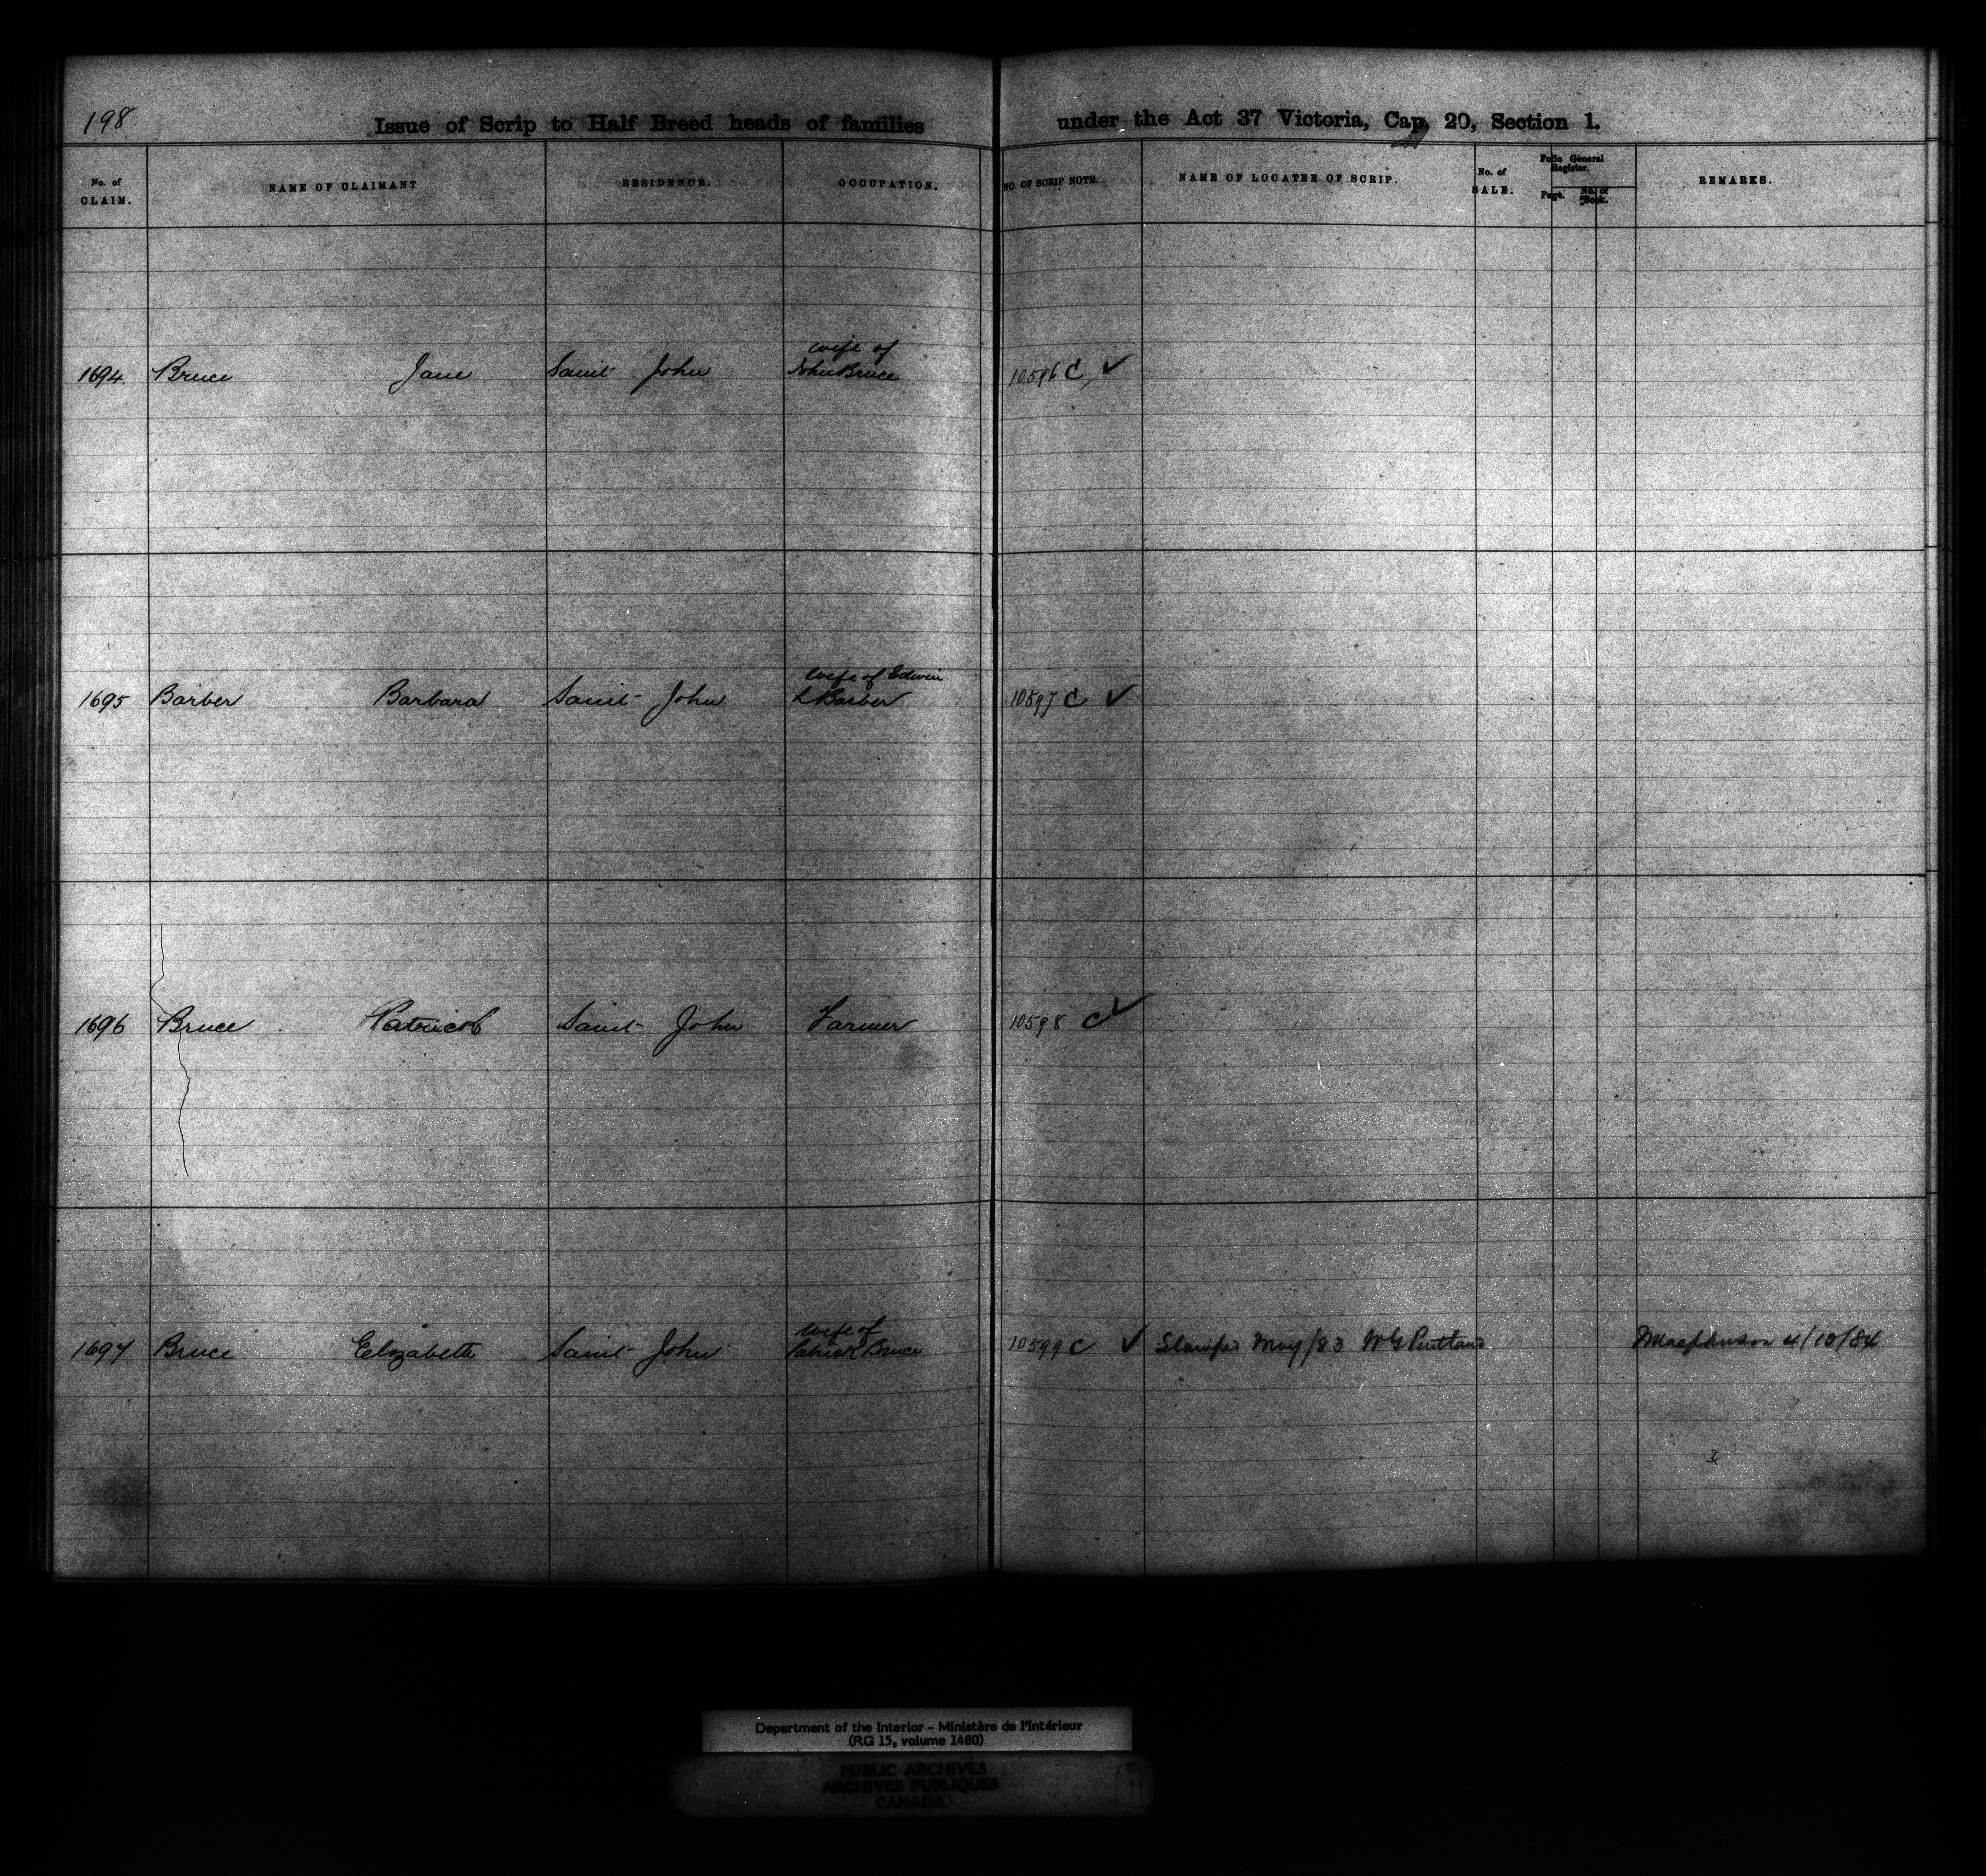 198
Issue of Scrip to Half Breed heads of families under the Act 37 Victoria, Cap. 20, Section 1.
No. of CLAIM. NAME OF CLAIMANT RESIDENCE. OCCUPATION. NO. OF SCRIP NOTE. NAME OF LOCATEE OF SCRIP. No. of SALE. Folio General Register. Page. No. of Book. REMARKS.
wife of
1694 Bruce Jane Saint John John Bruce 10596 C ✓
wife of Edwin
1695 Barber Barbara Saint John L Barber 10597 C ✓
1696 Bruce Saint John Farmer 10598 C ✓
wife of
1697 Bruce Elizabeth Saint John Patrick Bruce 10599 C ✓ May/83 W G 4/10/84
Department of the Interior - Ministère de l'Intérieur
(RG 15, volume 1480)
PUBLIC ARCHIVES
ARCHIVES PUBLIQUES
CANADA